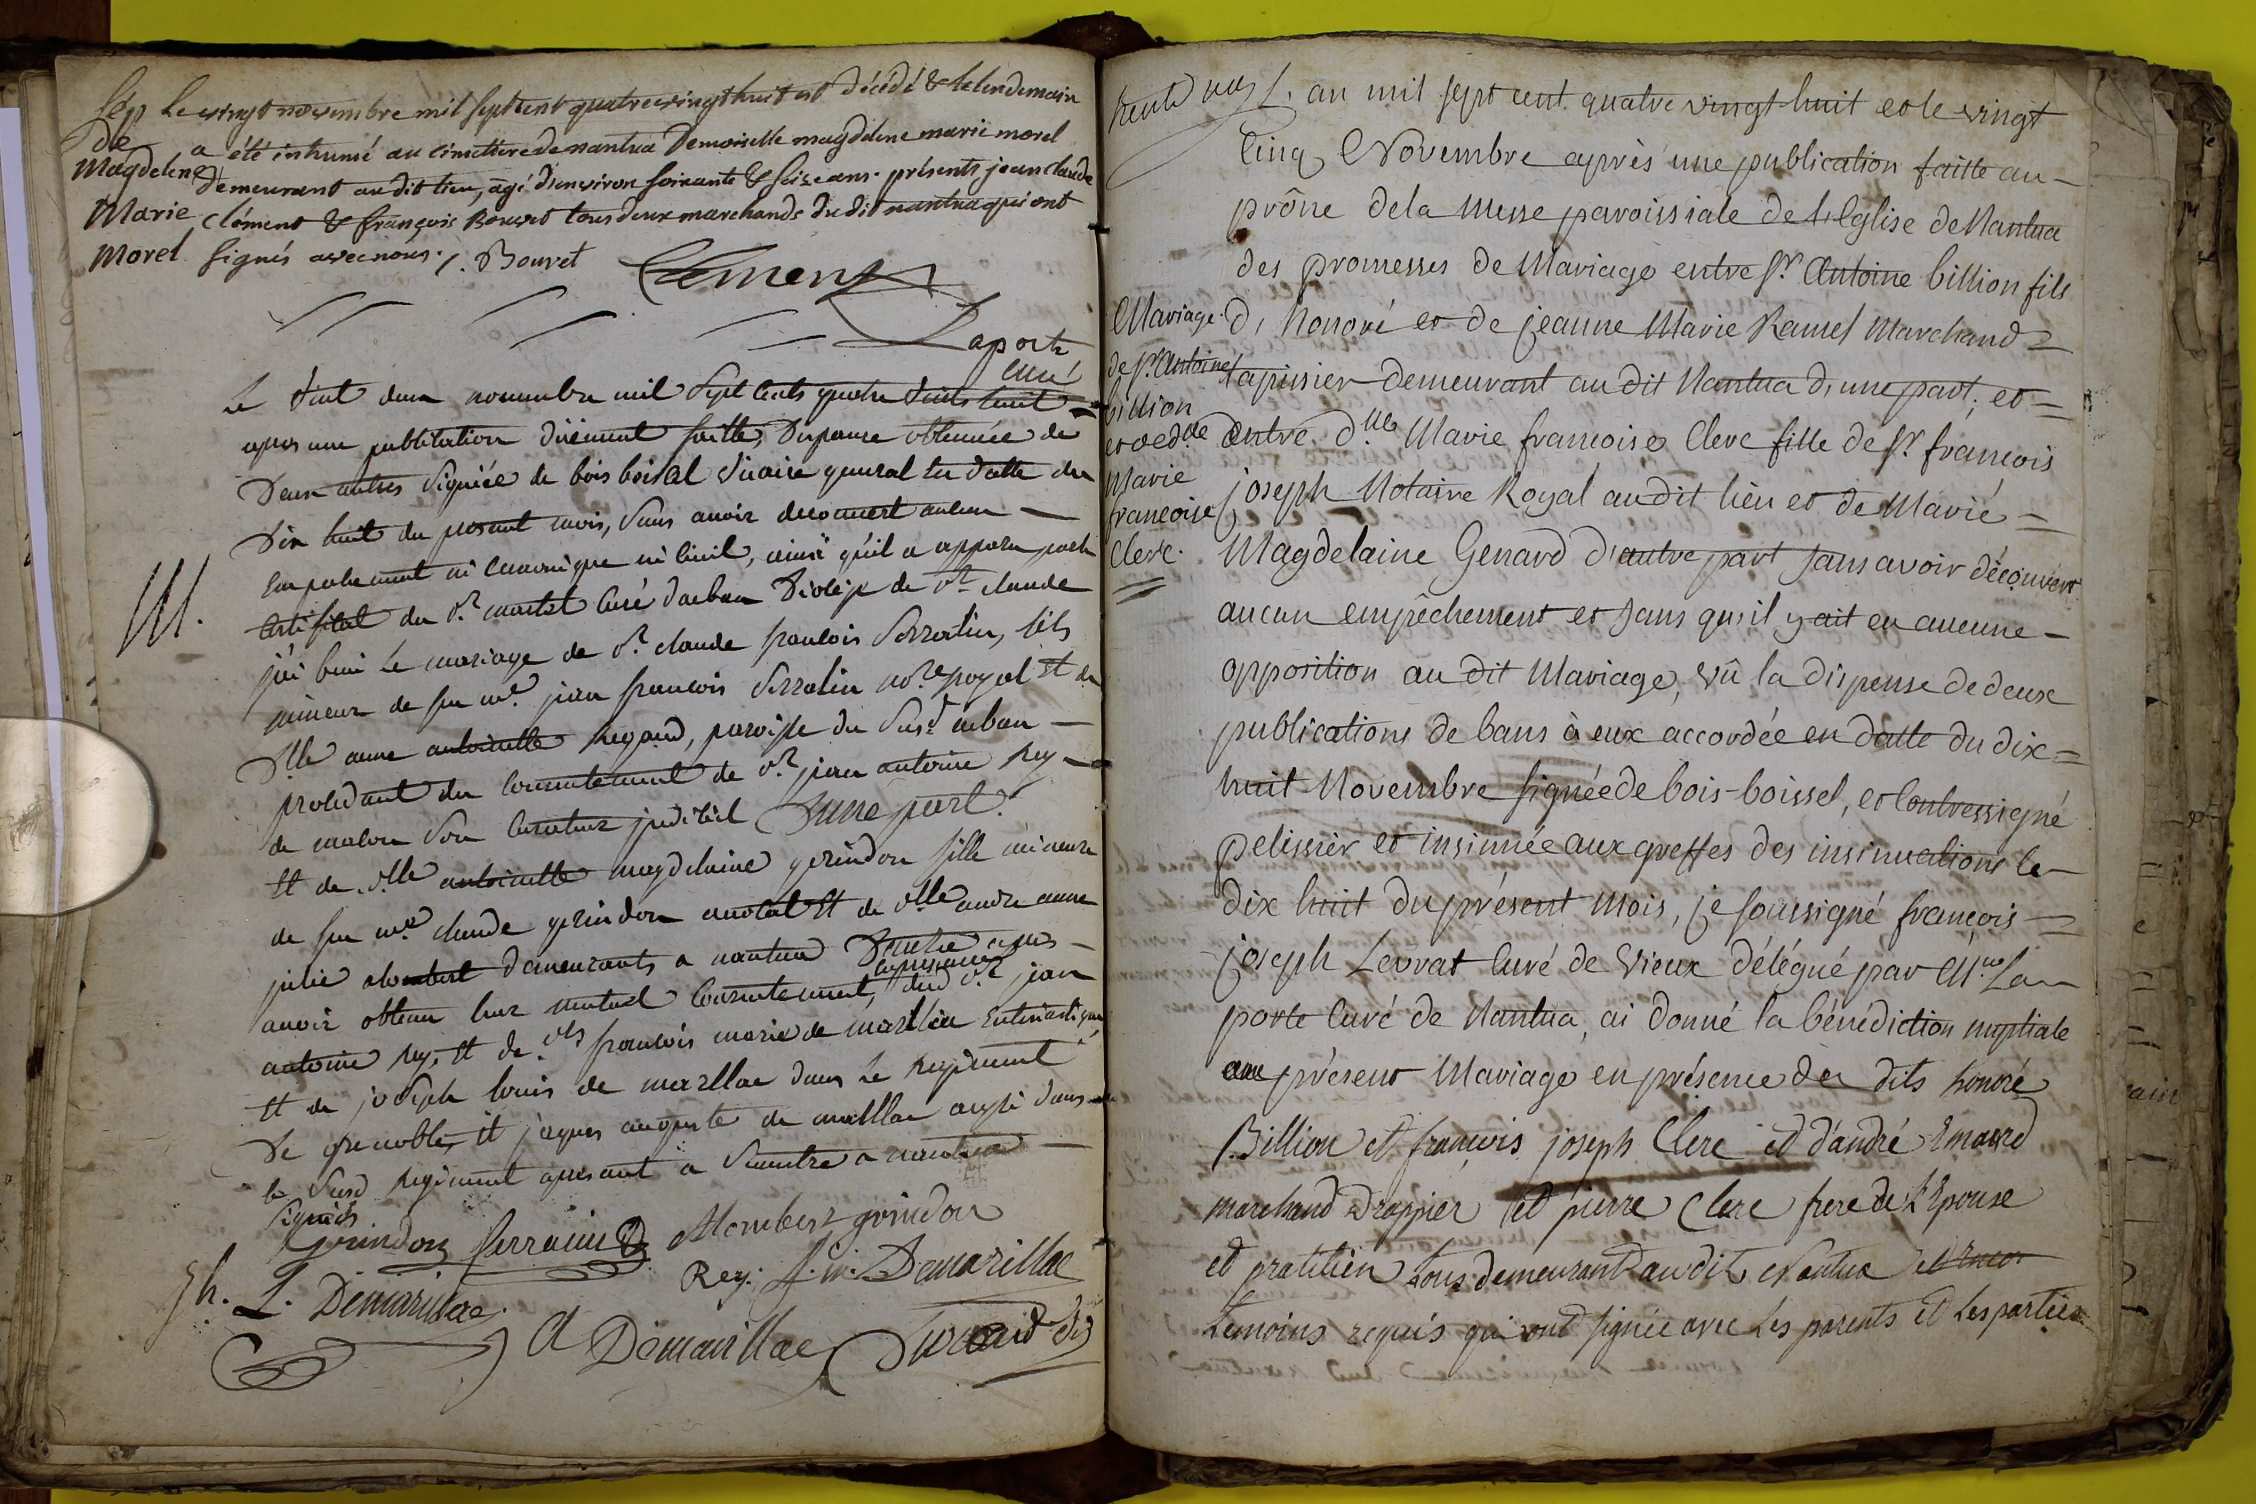 Sép
de
Magdelene
Marie
Morel
Le vingt novembre mil sept cent quatre vingt huit est décédé & le lendemain
a été inhumé au cimettere de nantua Demoiselle magdelene marie morel
demeurant au dit lieu, agé d'environ soixante & seize ans. présents jean claude
Clément & françois Bouvet tous deux marchands du dit nantua qui ont
signés avec nous. /. Bouvet Clement
Laporte
curé
M.
Le vint deux novembre mil sept cents quatre vints huit
apres une publication duement faitte, dispance obtenüe de
deux autres signiée de bois boisel vicaire general en datte du
dix huit du present mois, sans avoir decouvert aucun
empechement ni canonique ni civil, ainsi qu'il a apparu par le
certificat du Sr. martel curé d'arban diocèse de St. claude
j'ai beni le mariage de Sr. claude françois Serralin, fils
mineur de feu me. jean françois Serralin nore. royal et de
dlle anne antoinette Regaud, paroisse du susd. arban
procedant du consentement de Sr. jean antoine Rey
de malou son curateur judiciel d'une part.
et de dlle antoinette magdelaine grindon fille mineure
de feu me. claude grindon avocat et de dlle andre anne
julie alombert demeurants a nantua d'autre apres
avoir obtenu leur mutuel consentement, en presence dud. Sr. jean
antoine Rey, et de Srs françois marie de marillac
et de joseph louis de marillac dans le regiment
de grenoble, et jaques auguste de marillac aussi dans
le susd regiment apresant a nantua
signés
Grindon Alombert grindon
Rey. f. m. Demarillac
Jh. L. Demarillac
A Demarillac
trente neuf
L'an mil sept cent quatre vingt huit et le vingt
Cinq Novembre après une publication faitte au
prône de la Messe paroissiale de L'Eglise de Nantua
des promesses de Mariage entre Sr. Antoine billion fils
d'honoré et de jeanne Marie Ramel Marchand
tapissier demeurant au dit Nantua d'une part, et
entre dlle Marie françoise Clerc fille de Sr. françois
joseph Notaire Royal audit lieu et de Marie
Magdelaine Genard d'autre part sans avoir découvert
aucun empêchement et sans qu'il y ait eu aucune
opposition au dit Mariage, vû la dispense de deux
publications de bans à eux accordée en datte du dix
huit Novembre signée de bois-boissel, et Contressigné
pelissier et insinuée aux greffes des insinuations le
dix huit du présent Mois, je soussigné françois
joseph Levrat Curé de Vieux délégué par Mre La
porte Curé de Nantua, ai donné la bénédiction nuptiale
au présent Mariage en présence des dits honoré
Billion et françois joseph Clerc et d'andré Emared
marchand Drappier et pierre Clerc frere de L'Epouse
et pratitien tous demeurant audit Nantua
temoins requis qui ont signée avec les parents et les parties
Mariage
de Sr. Antoine
billion
et de dlle
Marie
françoise
Clerc.